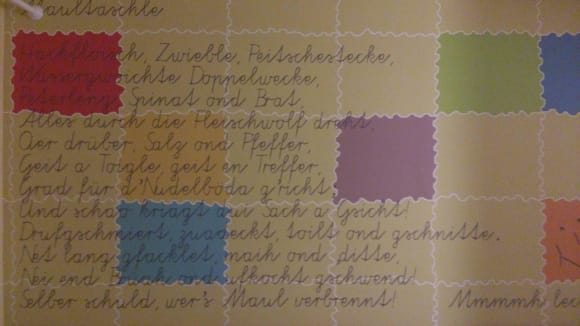 Maultaschle
Hackfleisch, Zwieble, Peitschestecke,
Wassergwoichte Doppelwecke,
Peterleng, Spinat ond Brat,
Alles durch die Fleischwolf dreht,
Oer drüber, Salz ond Pfeffer,
Geit a Toigle, geit en Treffer,
Grad für d'Nudelboda g'richt,
Ond schao kriagt dui Sach a Gsicht!
Drufgschmiert, zuadeckt, toilt ond gschnitte,
Net lang gfacklet, maih ond ditte,
Nei end Brüah ond ufkocht gschwend!
Selber schuld, wer's Maul verbrennt!
Mmmmh